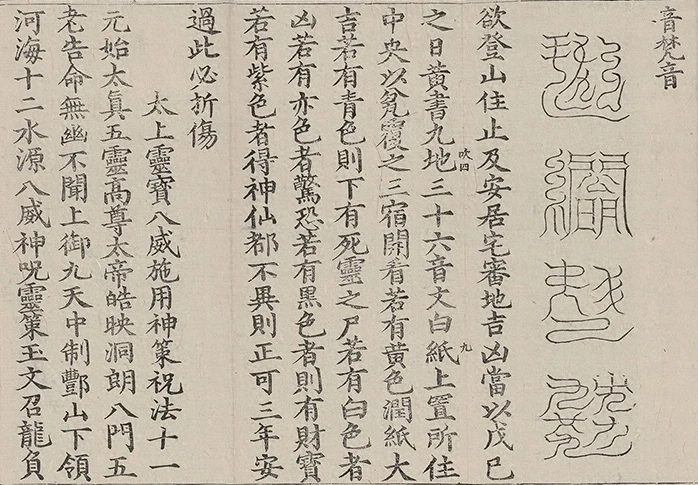 音梵音
欲登山住止及安居宅審地吉凶當以戊巳
之日黃書九地三十六音文白紙上置所住
吹四
九
中央以瓮覆之三宿開看若有黃色潤紙大
吉若有青色則下有死靈之尸若有白色者
凶若有亦色者驚恐若有黑色者則有財寶
若有紫色者得神仙都不異則正可三年安
過此必折傷
太上靈寶八威施用神策祝法十一
元始太真五靈高尊太帝皓映洞朗八門五
老告命無幽不聞上御九天中制酆山下領
河海十二水源八威神呪靈策玉文召龍負